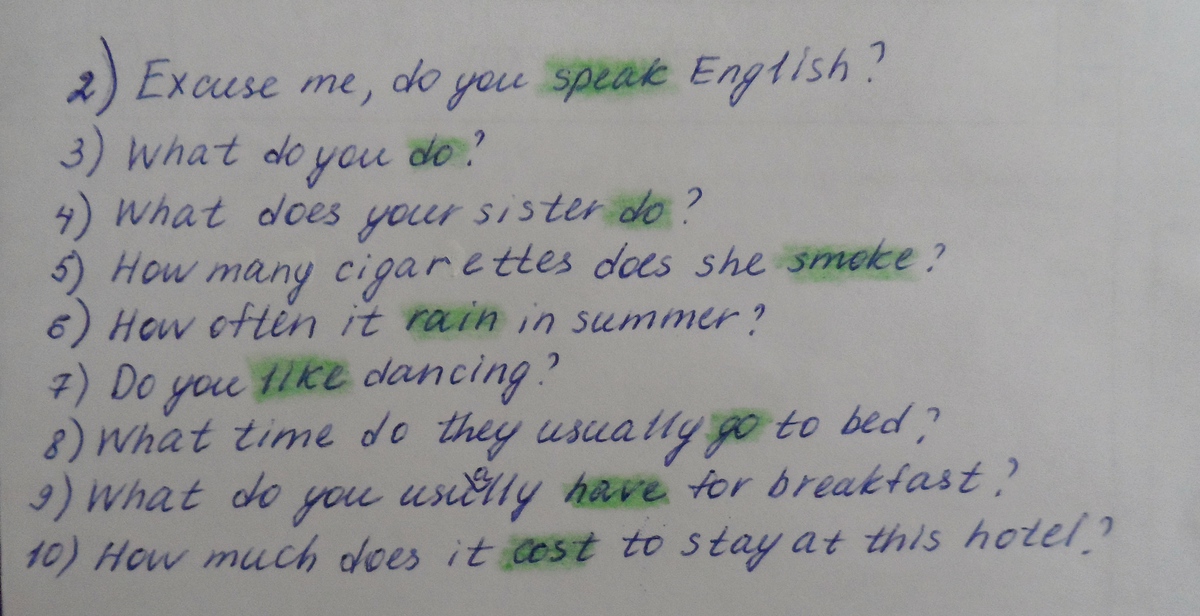 2) Excuse me, do you speak English?
3) What do you do?
4) What does your sister do?
5) How many cigarettes does she smoke?
6) How often it rain in summer?
7) Do you like dancing?
8) What time do they usually go to bed?
9) What do you usually have for breakfast?
10) How much does it cost to stay at this hotel?